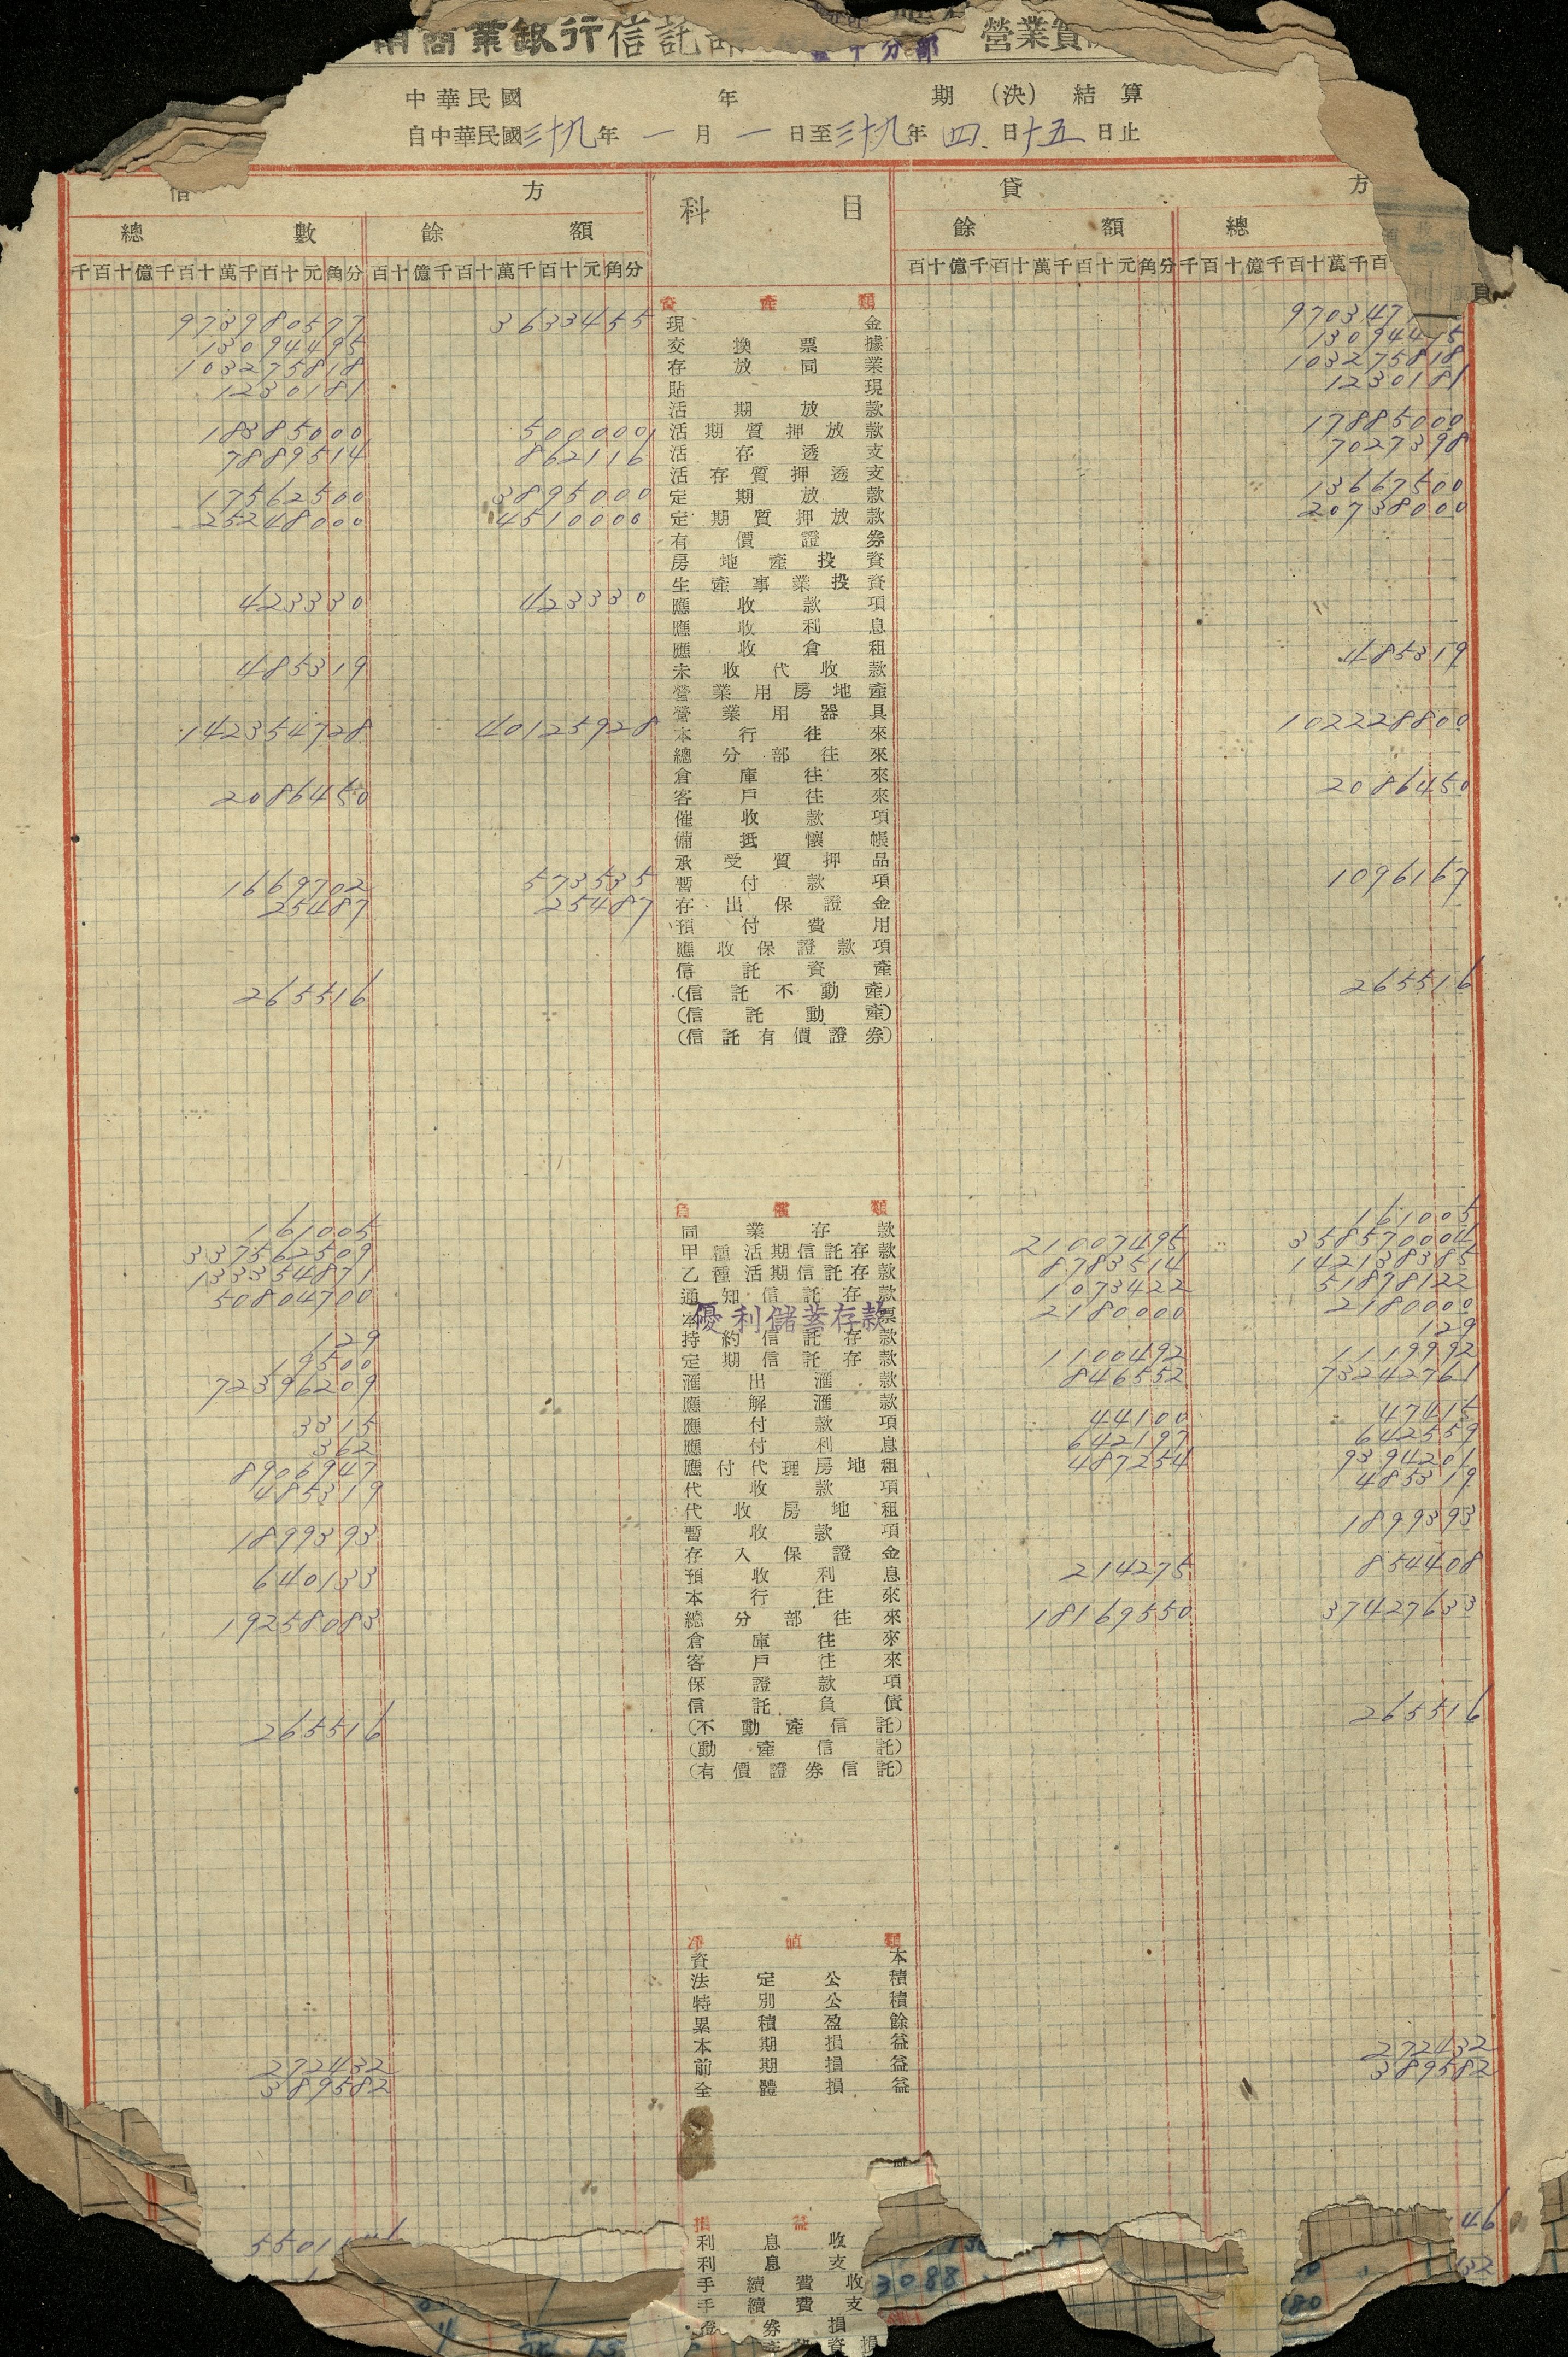 商業銀行信託部 分部 營業實
中華民國 年 期 (決) 結算
自中華民國三十九年 一 月 一 日至三十九年 四 日十五日止
借方 科目 貸方
總數 餘額 餘額 總
千百十億千百十萬千百十元角分 百十億千百十萬千百十元角分 百十億千百十萬千百十元角分 千百十億千百十萬千百
資產類
973980577 3633455 現金 9703471
13094495 交換票據 13094495
103275818 存放同業 103275818
1230181 貼現 1230181
活期放款
18385000 500000 活期質押放款 17885000
7889514 862116 活存透支 7027398
活存質押透支
17562500 3895000 定期放款 13667500
25248000 4510000 定期質押放款 20738000
有價證券
房地產投資
生產事業投資
423330 423330 應收款項
應收利息
應收倉租
485319 未收代收款 485319
營業用房地產
營業用器具
142354728 40125928 本行往來 102228800
總分部往來
倉庫往來
2086450 客戶往來 2086450
催收款項
備抵懷帳
承受質押品
1669702 573535 暫付款項 1096167
25487 25487 存出保證金
預付費用
應收保證款項
信託資產
265516 (信託不動產) 265516
(信託動產)
(信託有價證券)
負債類
161005 同業存款 161005
337562509 甲種活期信託存款 21007495 358570004
133354871 乙種活期信託存款 8783514 142138385
50804700 通知信託存款 1073422 51878122
優利儲蓄存款 2180000 2180000
129 特約信託存款 129
19500 定期信託存款 1100492 1119992
72396209 滙出滙款 846552 73242761
應解滙款
3315 應付款項 44100 47415
362 應付利息 642197 642559
8906947 應付代理房地租 487254 9394201
485319 代收款項 485319
代收房地租
1899393 暫收款項 1899393
存入保證金
640133 預收利息 214275 854408
本行往來
19258083 總分部往來 18169550 37427633
倉庫往來
客戶往來
保證款項
信託負債
265516 (不動產信託) 265516
(動產信託)
(有價證券信託)
淨值類
資本
法定公積
特別公積
累積盈餘
本期損益
272432 前期損益 272432
389582 全體損益 389582
損益
5501 利息收 46
利息支
手續費收 3088
手續費支
券損